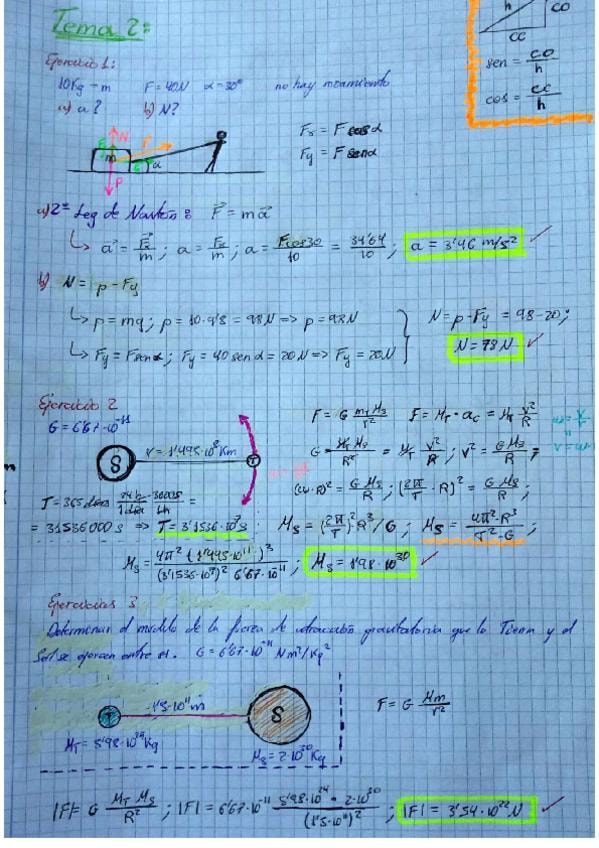 Tema 2:
h
CO
CC
sen = CO/h
cos = CC/h
Ejercicio 1:
10Kg → m F = 40N α = 30° no hay rozamiento
a) a? b) N?
N
F
m
α
P
Fx = F cosα
Fy = F senα
a) 2ª Ley de Newton: F⃗ = m a⃗
↳ a⃗ = F⃗x/m ; a = Fx/m ; a = Fcos30/10 = 34'64/10 ; a = 3'46 m/s²
b) N = p - Fy
↳ p = mg ; p = 10·9'8 = 98N => p = 98N
↳ Fy = Fsenα ; Fy = 40 senα = 20N => Fy = 20N
N = p - Fy = 98 - 20;
N = 78N
Ejercicio 2
G = 6'67·10⁻¹¹
S
r = 1'495·10⁸ Km
T
F = G mT Ms/R² F = MT · ac = MT v²/R
G MT Ms/R² = MT v²/R ; v² = G Ms/R ;
(ω·R)² = G Ms/R ; (2π/T · R)² = G Ms/R ;
T = 365 días 24h/1día 3600s/1h =
= 31536000 s => T = 3'1536·10⁷ s
Ms = (2π/T)² R³/G ; Ms = 4π²·R³/T²·G ;
Ms = 4π² (1'495·10¹¹)³/(3'1536·10⁷)² 6'67·10⁻¹¹ ; Ms = 1'98·10³⁰
Ejercicios 3
Determinar el modulo de la fuerza de atracción gravitatoria que la Tierra y el
Sol se ejercen entre sí. G = 6'67·10⁻¹¹ Nm²/Kg²
1'5·10¹¹ m
T
S
MT = 5'98·10²⁴ Kg
Ms = 2·10³⁰ Kg
F = G Mm/r²
|F| = G MT Ms/R² ; |F| = 6'67·10⁻¹¹ 5'98·10²⁴ · 2·10³⁰/(1'5·10¹¹)² ; |F| = 3'54·10²² N